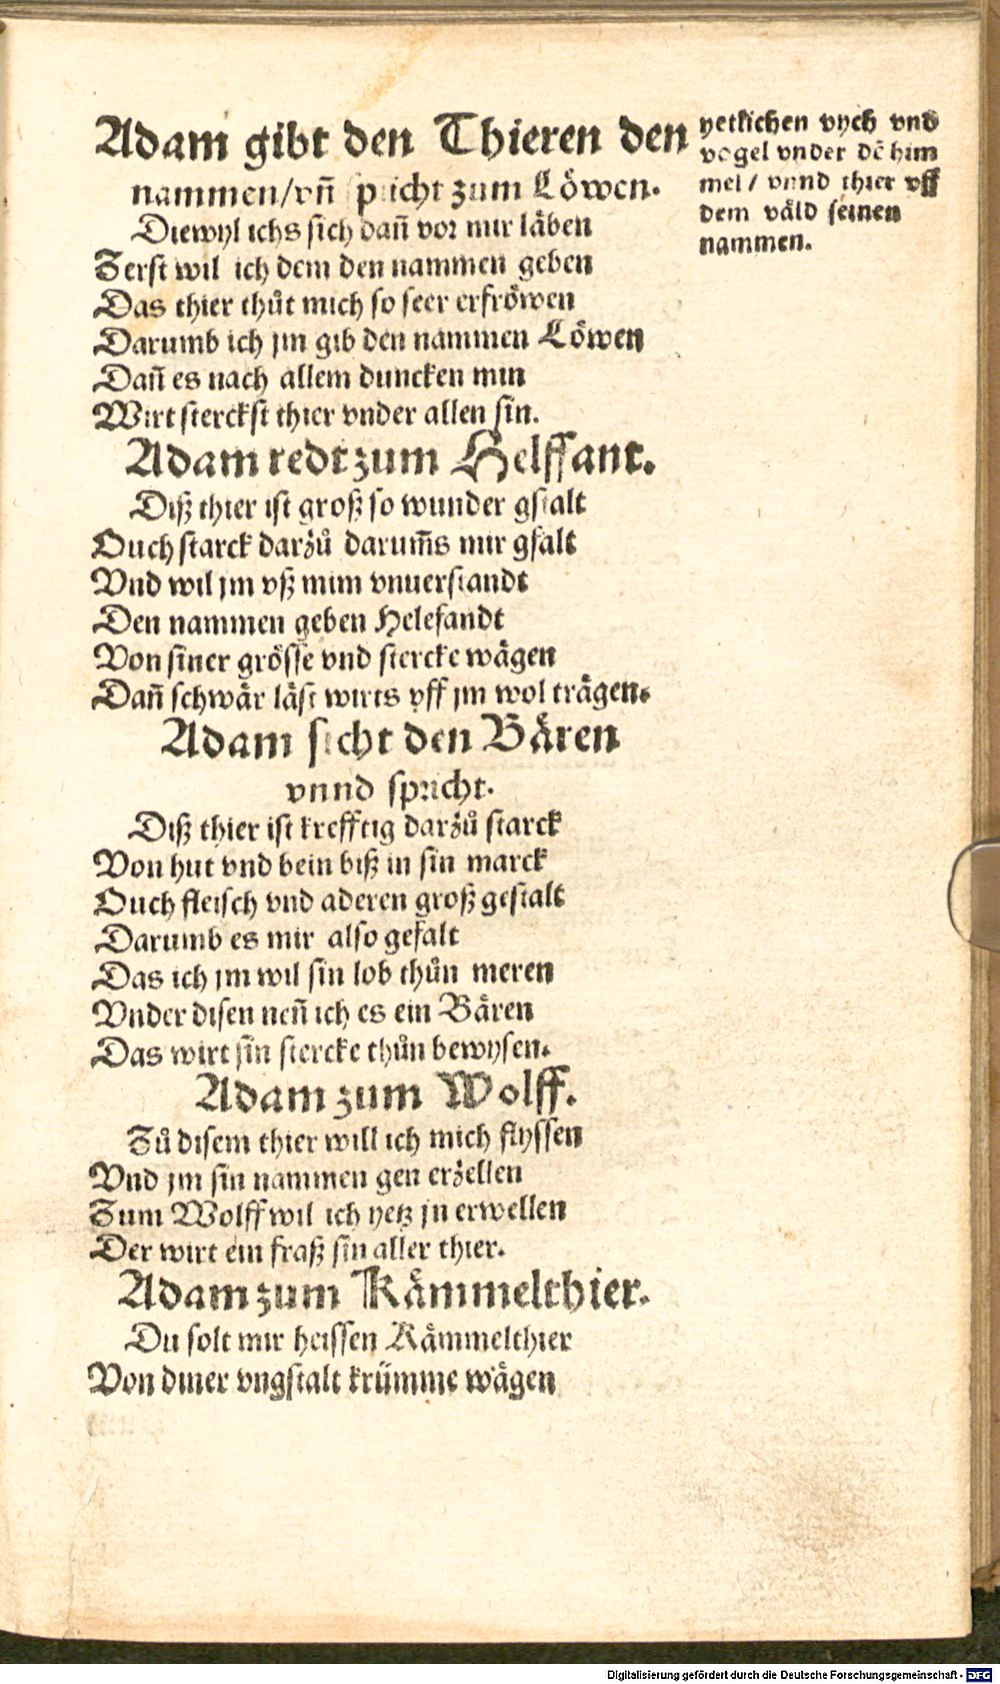 Adam gibt den Thieren den
nammen/vñ spricht zum Löwen.
Diewyl ichs sich dañ vor mir läben
Zerst wil ich dem den nammen geben
Das thier thůt mich so seer erfröwen
Darumb ich jm gib den nammen Löwen
Dañ es nach allem duncken min
Wirt sterckst thier vnder allen sin.
Adam redt zum Helffant.
Diß thier ist groß so wunder gstalt
Ouch starck darzů darum̃s mir gfalt
Vnd wil jm vß mim vnuerstandt
Den nammen geben Helefandt
Von siner grösse vnd stercke wägen
Dañ schwär läst wirts vff jm wol trägen.
Adam sicht den Bären
vnnd spricht.
Diß thier ist krefftig darzů starck
Von hut vnd bein biß in sin marck
Ouch fleisch vnd aderen groß gestalt
Darumb es mir also gefalt
Das ich jm wil sin lob thůn meren
Vnder disen neñ ich es ein Bären
Das wirt sin stercke thůn bewysen.
Adam zum Wolff.
Zů disem thier will ich mich flyssen
Vnd jm sin nammen gen erzellen
Zum Wolff wil ich yetz jn erwellen
Der wirt ein fraß sin aller thier.
Adam zum Kämmelthier.
Du solt mir heissen Kämmelthier
Von diner vngstalt krümme wägen
yetlichen vych vnd
vogel vnder dẽ him
mel / vnnd thier vff
dem väld seinen
nammen.
Digitalisierung gefördert durch die Deutsche Forschungsgemeinschaft - DFG